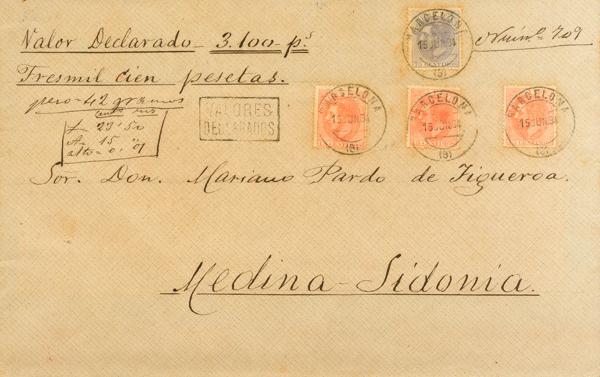 Valor Declarado 3.100 p.s
Núm.o 709
Tresmil cien pesetas.
peso 42 gramos
L 23'50
A 15 "
alto 0.'01
VALORES
DECLARADOS
BARCELONA
15 JUN 84
(9)
BARCELONA
15 JUN 84
(9)
BARCELONA
15 JUN 84
(9)
BARCELONA
15 JUN 84
(9)
Sor. Don. Mariano Pardo de Figueroa.
Medina-Sidonia.